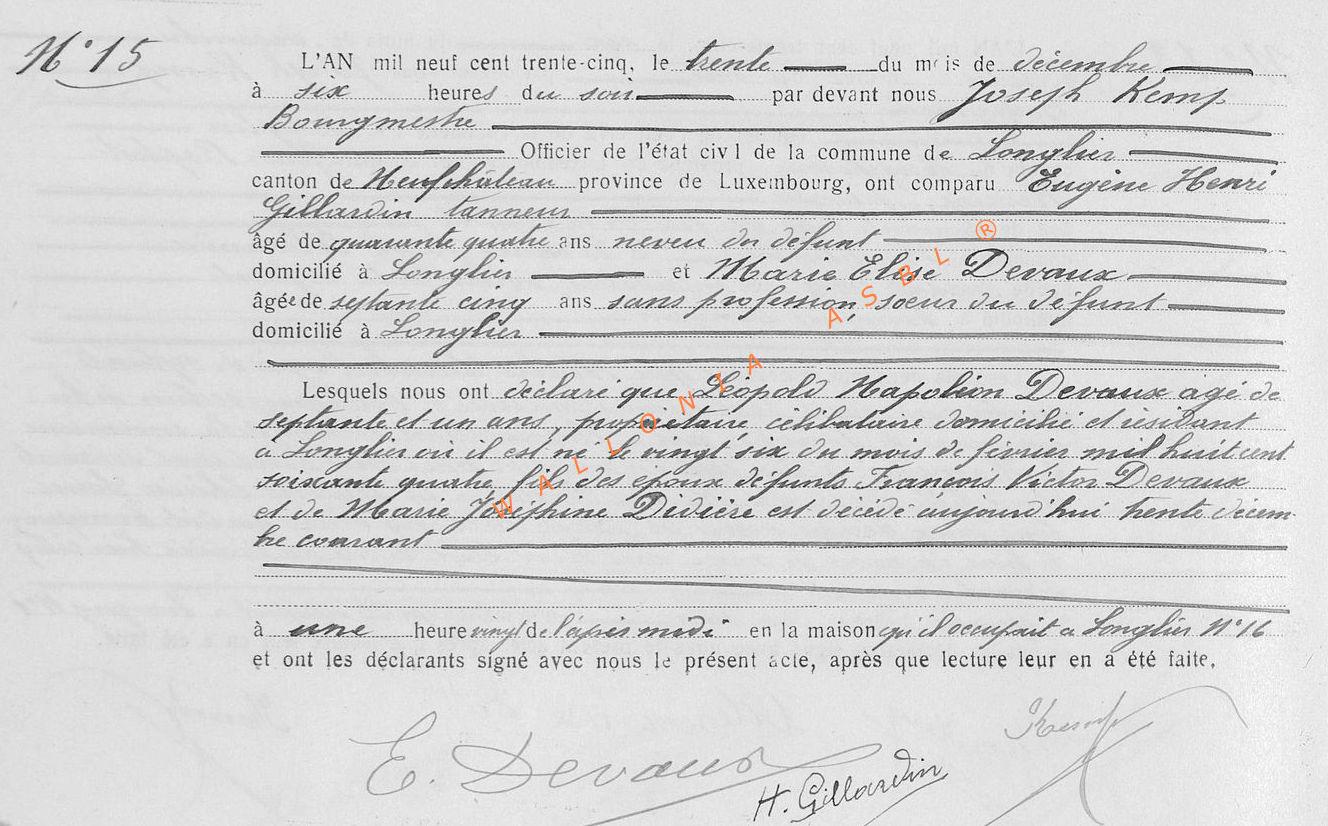 N° 15
L'AN mil neuf cent trente-cinq, le trente du mois de décembre
à six heures du soir par devant nous Joseph Kemp
Bourgmestre
Officier de l'état civil de la commune de Longlier
canton de Neufchâteau province de Luxembourg, ont comparu Eugène Henri
Gillardin tanneur
âgé de quarante quatre ans neveu du défunt
domicilié à Longlier et Marie Elise Devaux
âgée de septante cinq ans sans profession, sœur du défunt
domicilié à Longlier
Lesquels nous ont déclaré que Léopold Napoléon Devaux âgé de
septante et un ans, propriétaire célibataire domicilié et résidant
à Longlier où il est né le vingt six du mois de février mil huit cent
soixante quatre, fils des époux défunts François Victor Devaux
et de Marie Joséphine Didière est décédé aujourd'hui trente décem-
bre courant
à une heure vingt de l'après midi en la maison qu'il occupait à Longlier N° 16
et ont les déclarants signé avec nous le présent acte, après que lecture leur en a été faite.
E. Devaux
H. Gillardin
Kemp
WALLONIA ASBL ®